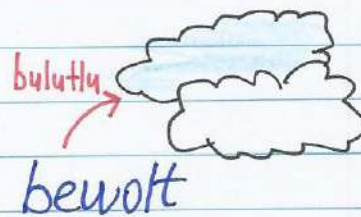 bulutlu
bewolt